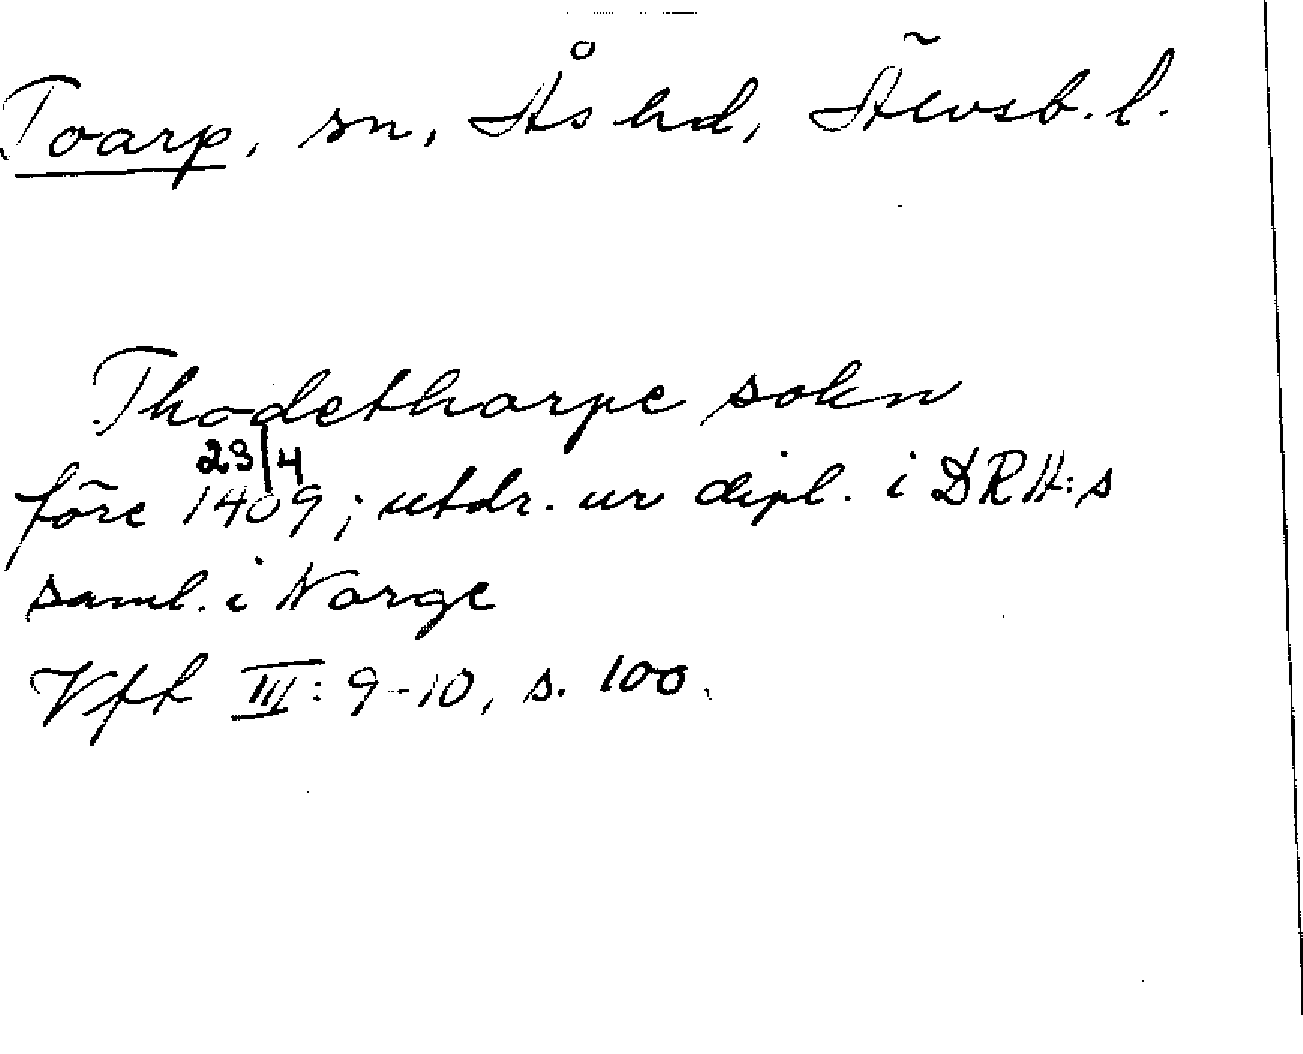 Toarp, sn, Ås hd, Älvsb. l.
Thodethorpe sokn
23/4
före 1409; utdr. ur dipl. i DRH:s
saml. i Norge
Vfh III: 9-10, s. 100.